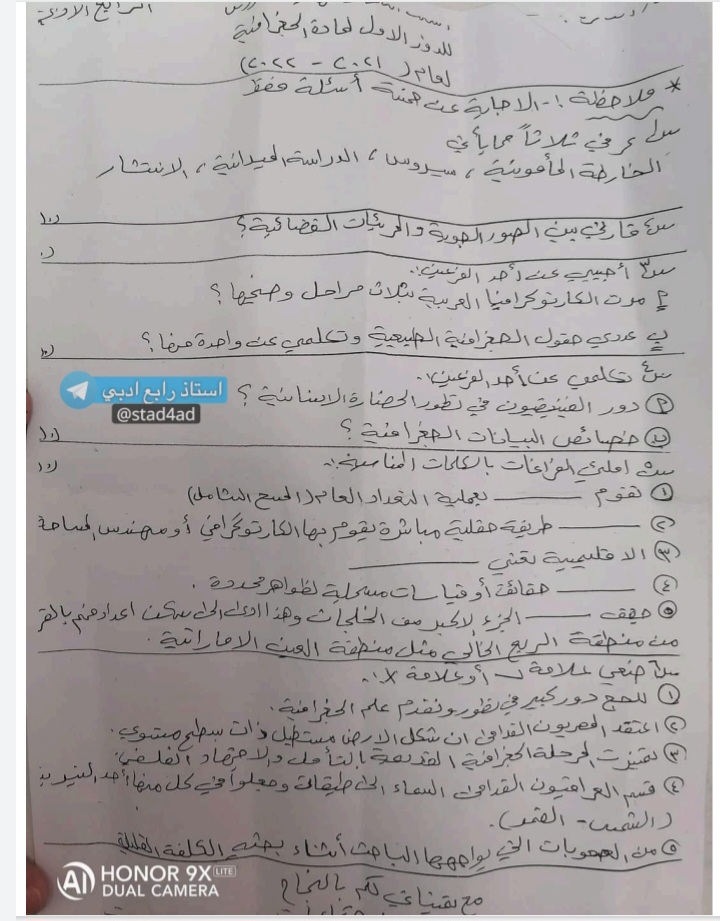 الرابع الادبي
للدور الاول لمادة الجغرافية
لعام (٢٠٢١ - ٢٠٢٢)
* ملاحظة :- الاجابة عن خمسة أسئلة فقط
س١ عرفي ثلاثاً مما يأتي
الخارطة المأمونية ، سيروس ، الدراسة الميدانية ، الانتشار
س٢ قارني بين الصور الجوية والمرئيات الفضائية ؟ (١٠)
س٣ أجيبي عن أحد الفرعين:
أ مرت الكارتوكرافيا العربية بثلاث مراحل وضحيها ؟
ب عددي حقول الجغرافية الطبيعية وتكلمي عن واحدة منها ؟ (١٠)
س٤ تكلمي عن أحد الفرعين:
أ دور الفينيقيون في تطور الحضارة الانسانية ؟
ب خصائص البيانات الجغرافية ؟ (١٠)
استاذ رابع ادبي
@stad4ad
س٥ املئي الفراغات بالكلمات المناسبة: (١٠)
١ تقوم ــــــ بعملية التعداد العام (المسح الشامل)
٢ ــــــ طريقة حقلية مباشرة يقوم بها الكارتوكرافي أو مهندس المساحة
٣ الاقليمية تعني ــــــ
٤ ــــــ حقائق أو قياسات مسجلة لظواهر محددة .
٥ جفف ــــــ الجزء الاكبر من الخلجات وهذا ادى الى سكن اعداد منهم بالقر
من منطقة الربع الخالي مثل منطقة العين الاماراتية .
س٦ ضعي علامة ✓ أو علامة X :
١ للحج دور كبير في تطور وتقدم علم الجغرافية .
٢ اعتقد المصريون القدامى ان شكل الارض مستطيل ذات سطح مستوي .
٣ تميزت المرحلة الجغرافية القديمة بالتأمل والاجتهاد الفلسفي
٤ قسم العراقيون القدامى السماء الى طبقات وجعلوا في كل منها أحد النيرين
(الشمس - القمر).
٥ من الصعوبات التي يواجهها الباحث أثناء بحثه الكلفة القليلة
مع تمنياتي لكم بالنجاح
HONOR 9X LITE
AI DUAL CAMERA